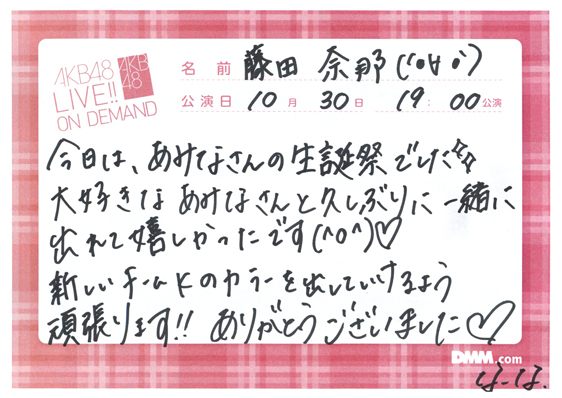 AKB48
LIVE!!
ON DEMAND
AKB
48
名前 藤田 奈那(('ο∀ο'))
公演日 10月 30日 19:00公演
今日は、あみなさんの生誕祭でした
大好きな あみなさんと久しぶりに一緒に
出れて嬉しかったです(^o^)♡
新しいチームKのカラーを出していけるよう
頑張ります!! ありがとうございました♡
DMM.com
なーな.